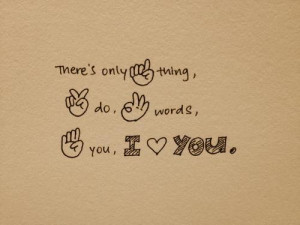 There's only ☝ thing,
✌ do. 👌 words,
you. I ♡ YOU.